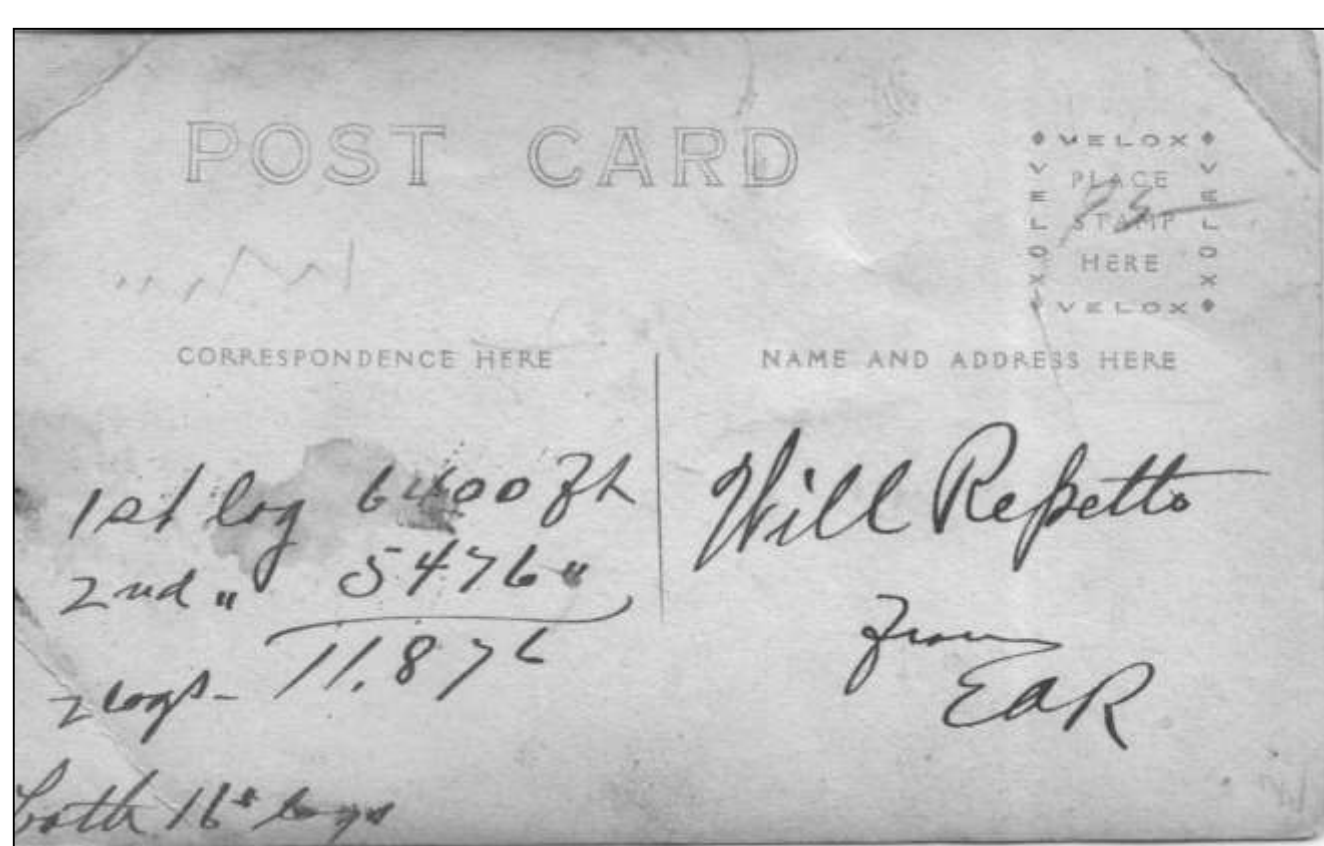 POST CARD
VELOX
PLACE
STAMP
HERE
VELOX
VELOX
VELOX
75
CORRESPONDENCE HERE
NAME AND ADDRESS HERE
1st log 6400 ft
2nd " 5476 "
2 logs - 11,876
both 16" logs
Will Repetto
from
EAR